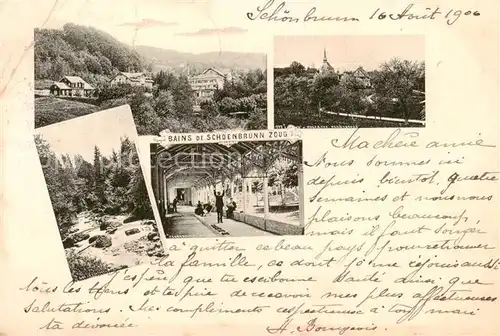 Schönbrunn 16 Août 1900
BAINS DE SCHOENBRUNN ZOUG
Ma chère amie
Nous sommes ici
depuis bientôt quatre
semaines et nous nous
plaisons beaucoup,
mais il faut songer
à quitter ce beau pays pour retrouver
la famille, ce dont je me réjouis aussi.
J'espère que tu es en bonne santé ainsi que
tous les tiens et te prie de recevoir mes plus affectueuses
salutations. Mes compliments respectueux à ton mari
ta devouée